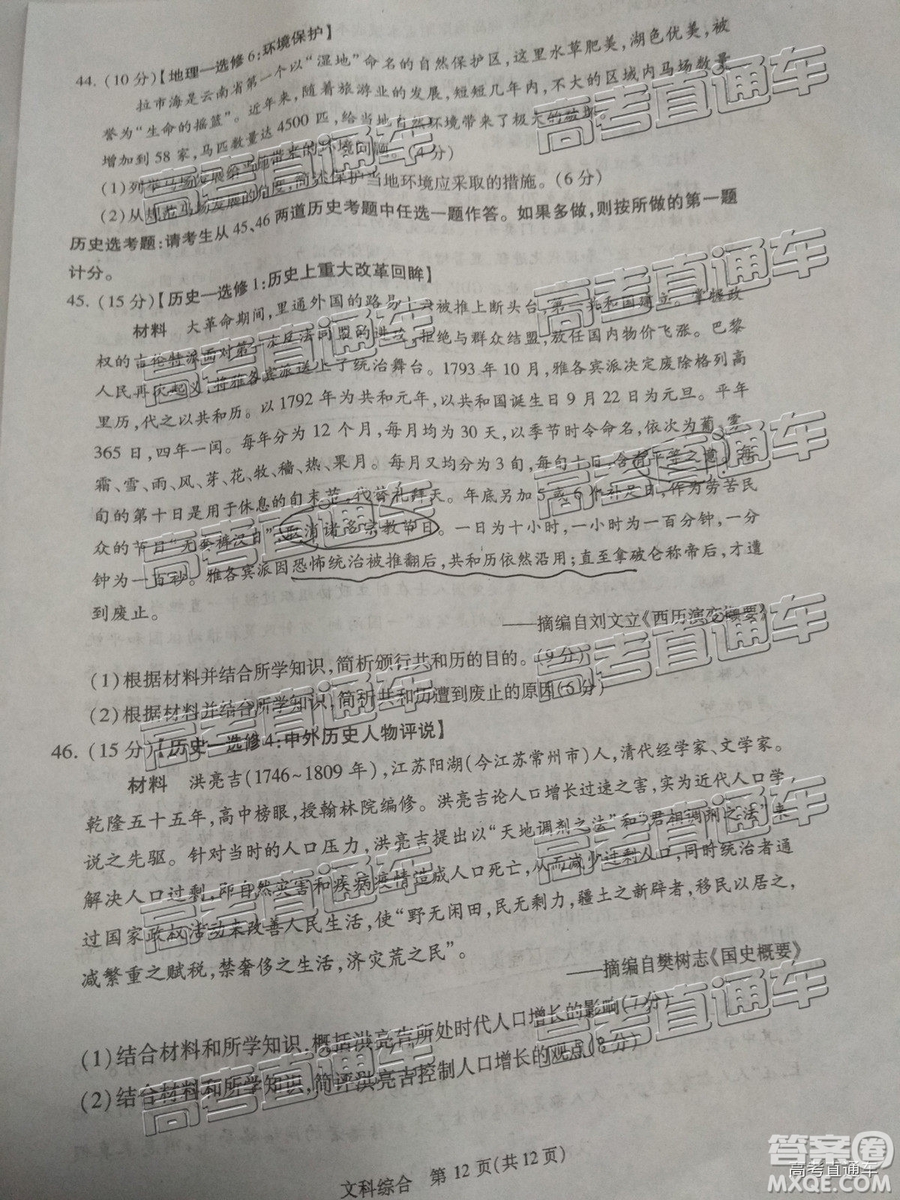 44. (10 分)【地理—选修 6:环境保护】
拉市海是云南省第一个以“湿地”命名的自然保护区,这里水草肥美,湖色优美,被
誉为“生命的摇篮”。近年来,随着旅游业的发展,短短几年内,不大的区域内马场数量
增加到 58 家,马匹数量达 4500 匹,给当地自然环境带来了极大的
(1)列举马场发展给当地带来的环境问题。(4 分)
(2)从规范马场发展的角度,简述保护当地环境应采取的措施。(6 分)
历史选考题:请考生从 45、46 两道历史考题中任选一题作答。如果多做,则按所做的第一题
计分。
45. (15 分)【历史—选修 1:历史上重大改革回眸】
材料 大革命期间,里通外国的路易十六被推上断头台,第一共和国建立。掌握政
权的吉伦特派面对第一次反法同盟的进攻,拒绝与群众结盟,放任国内物价飞涨。巴黎
人民再次起义,将雅各宾派送上了统治舞台。1793 年 10 月,雅各宾派决定废除格列高
里历,代之以共和历。以 1792 年为共和元年,以共和国诞生日 9 月 22 日为元旦。平年
365 日,四年一闰。每年分为 12 个月,每月均为 30 天,以季节时令命名,依次为葡、雾、
霜、雪、雨、风、芽、花、牧、穑、热、果月。每月又分为 3 旬,每旬十日,含有平等之意。每
旬的第十日是用于休息的旬末节,代替礼拜天。年底另加 5 或 6 个补足日,作为劳苦民
众的节日“无套裤汉日”,取消诸多宗教节日。一日为十小时,一小时为一百分钟,一分
钟为一百秒。雅各宾派因恐怖统治被推翻后,共和历依然沿用;直至拿破仑称帝后,才遭
到废止。
——摘编自刘文立《西历演变概要》
(1)根据材料并结合所学知识,简析颁行共和历的目的。(9 分)
(2)根据材料并结合所学知识,简析共和历遭到废止的原因(6 分)
46. (15 分)【历史—选修 4:中外历史人物评说】
材料 洪亮吉(1746~1809 年),江苏阳湖(今江苏常州市)人,清代经学家、文学家。
乾隆五十五年,高中榜眼,授翰林院编修。洪亮吉论人口增长过速之害,实为近代人口学
说之先驱。针对当时的人口压力,洪亮吉提出以“天地调剂之法”和“君相调剂之法”来
解决人口过剩,即自然灾害和疾病疫情造成人口死亡,从而减少过剩人口,同时统治者通
过国家政权活动来改善人民生活,使“野无闲田,民无剩力,疆土之新辟者,移民以居之,
减繁重之赋税,禁奢侈之生活,济灾荒之民”。
——摘编自樊树志《国史概要》
(1)结合材料和所学知识,概括洪亮吉所处时代人口增长的影响(7 分)
(2)结合材料和所学知识,简评洪亮吉控制人口增长的观点(8 分)
文科综合 第 12 页(共 12 页)
高考直通车
答案圈
高考直通车
MXQE.COM